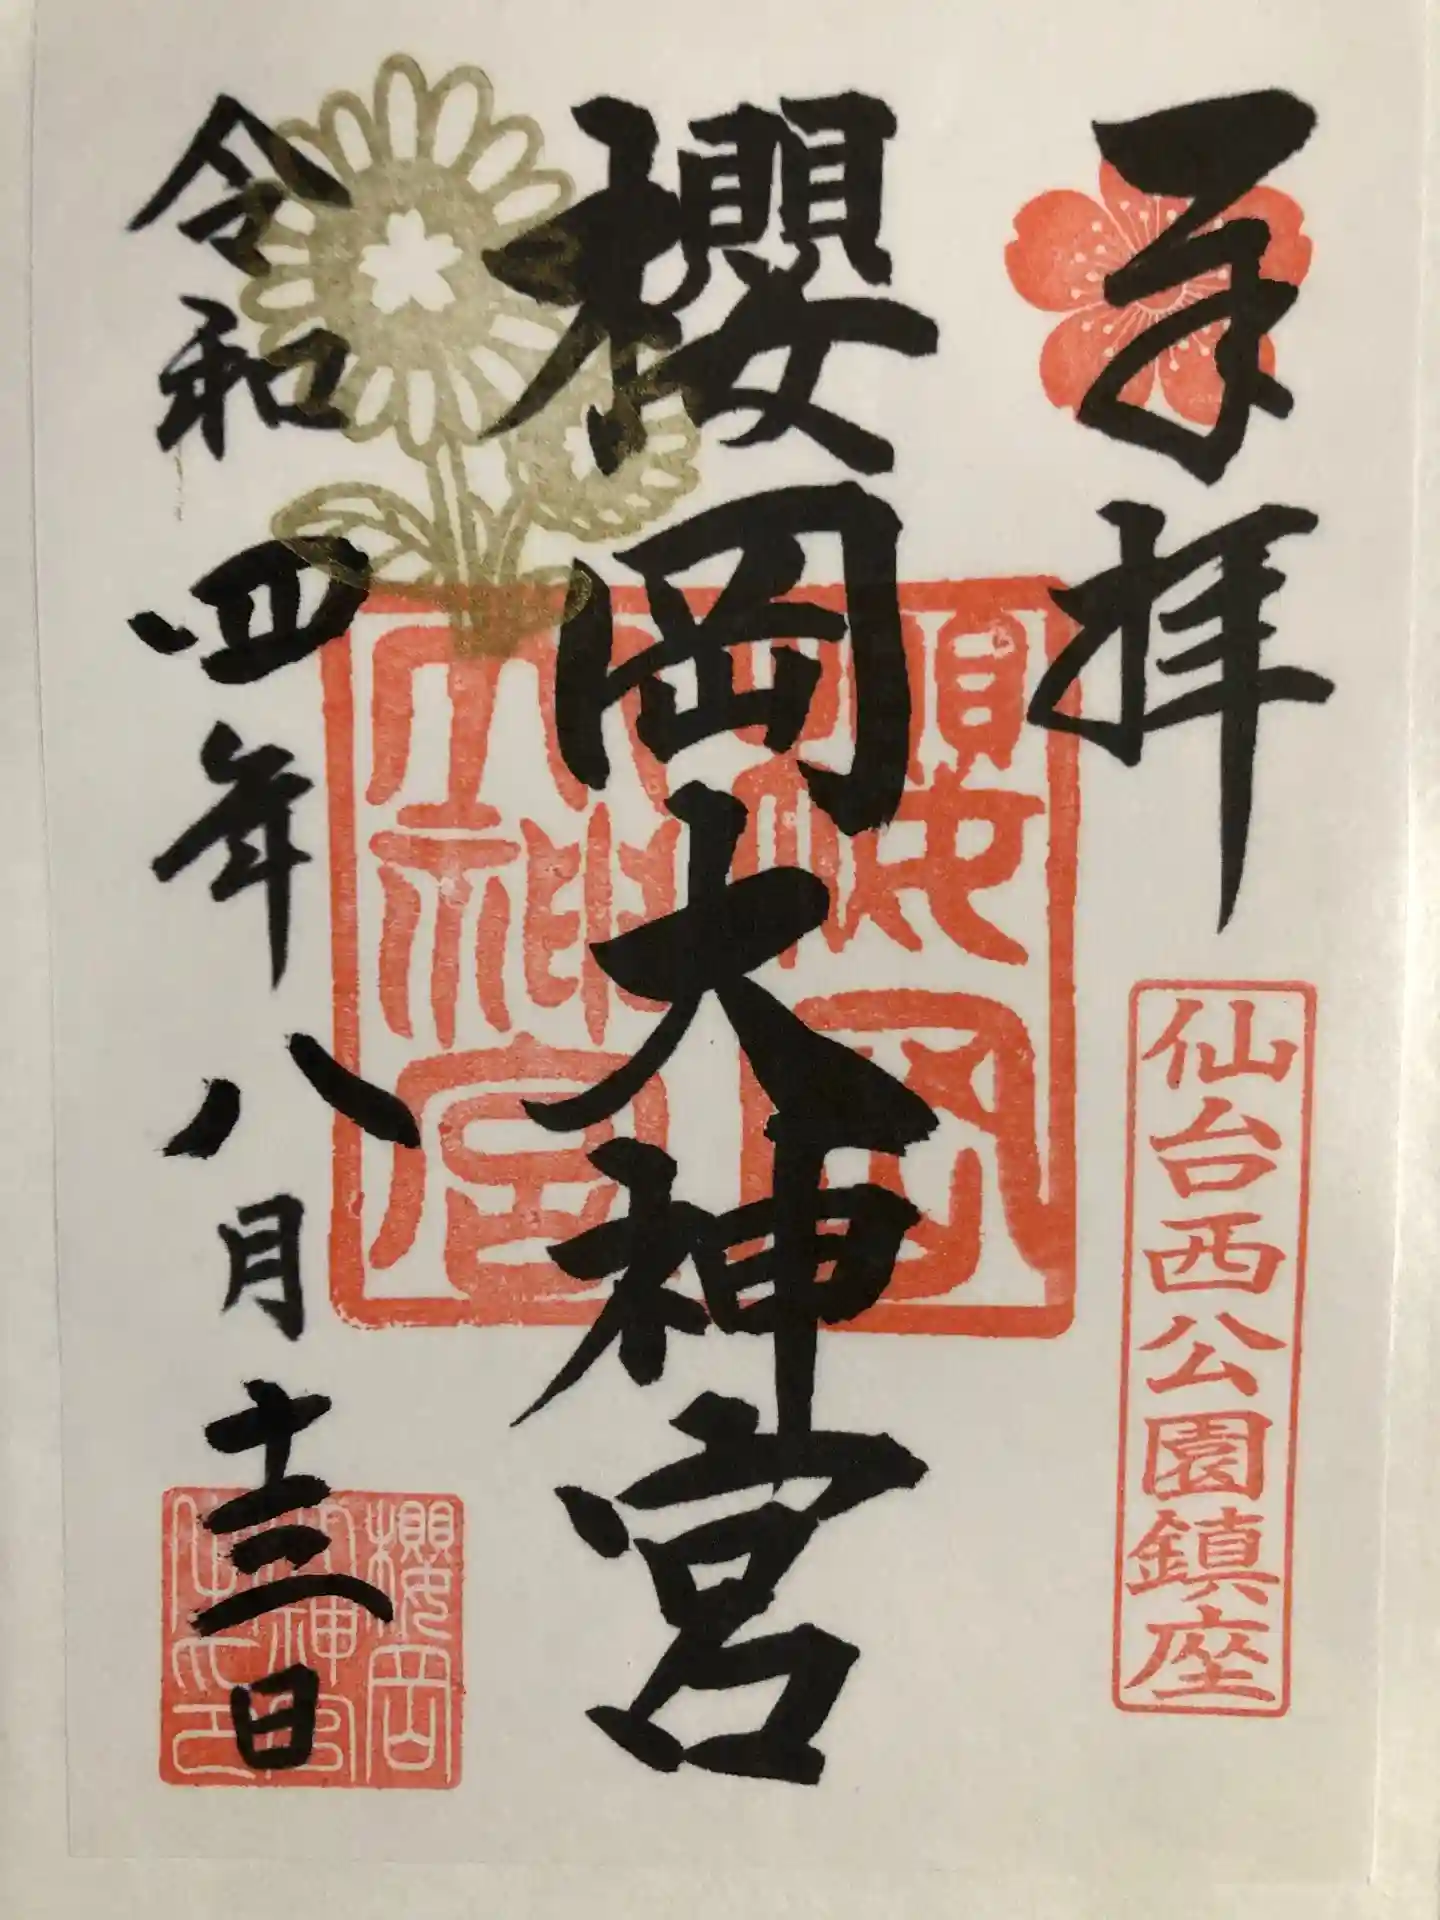 奉拝
仙台西公園鎮座
櫻岡大神宮
櫻岡
大神宮
令和四年八月十三日
櫻岡